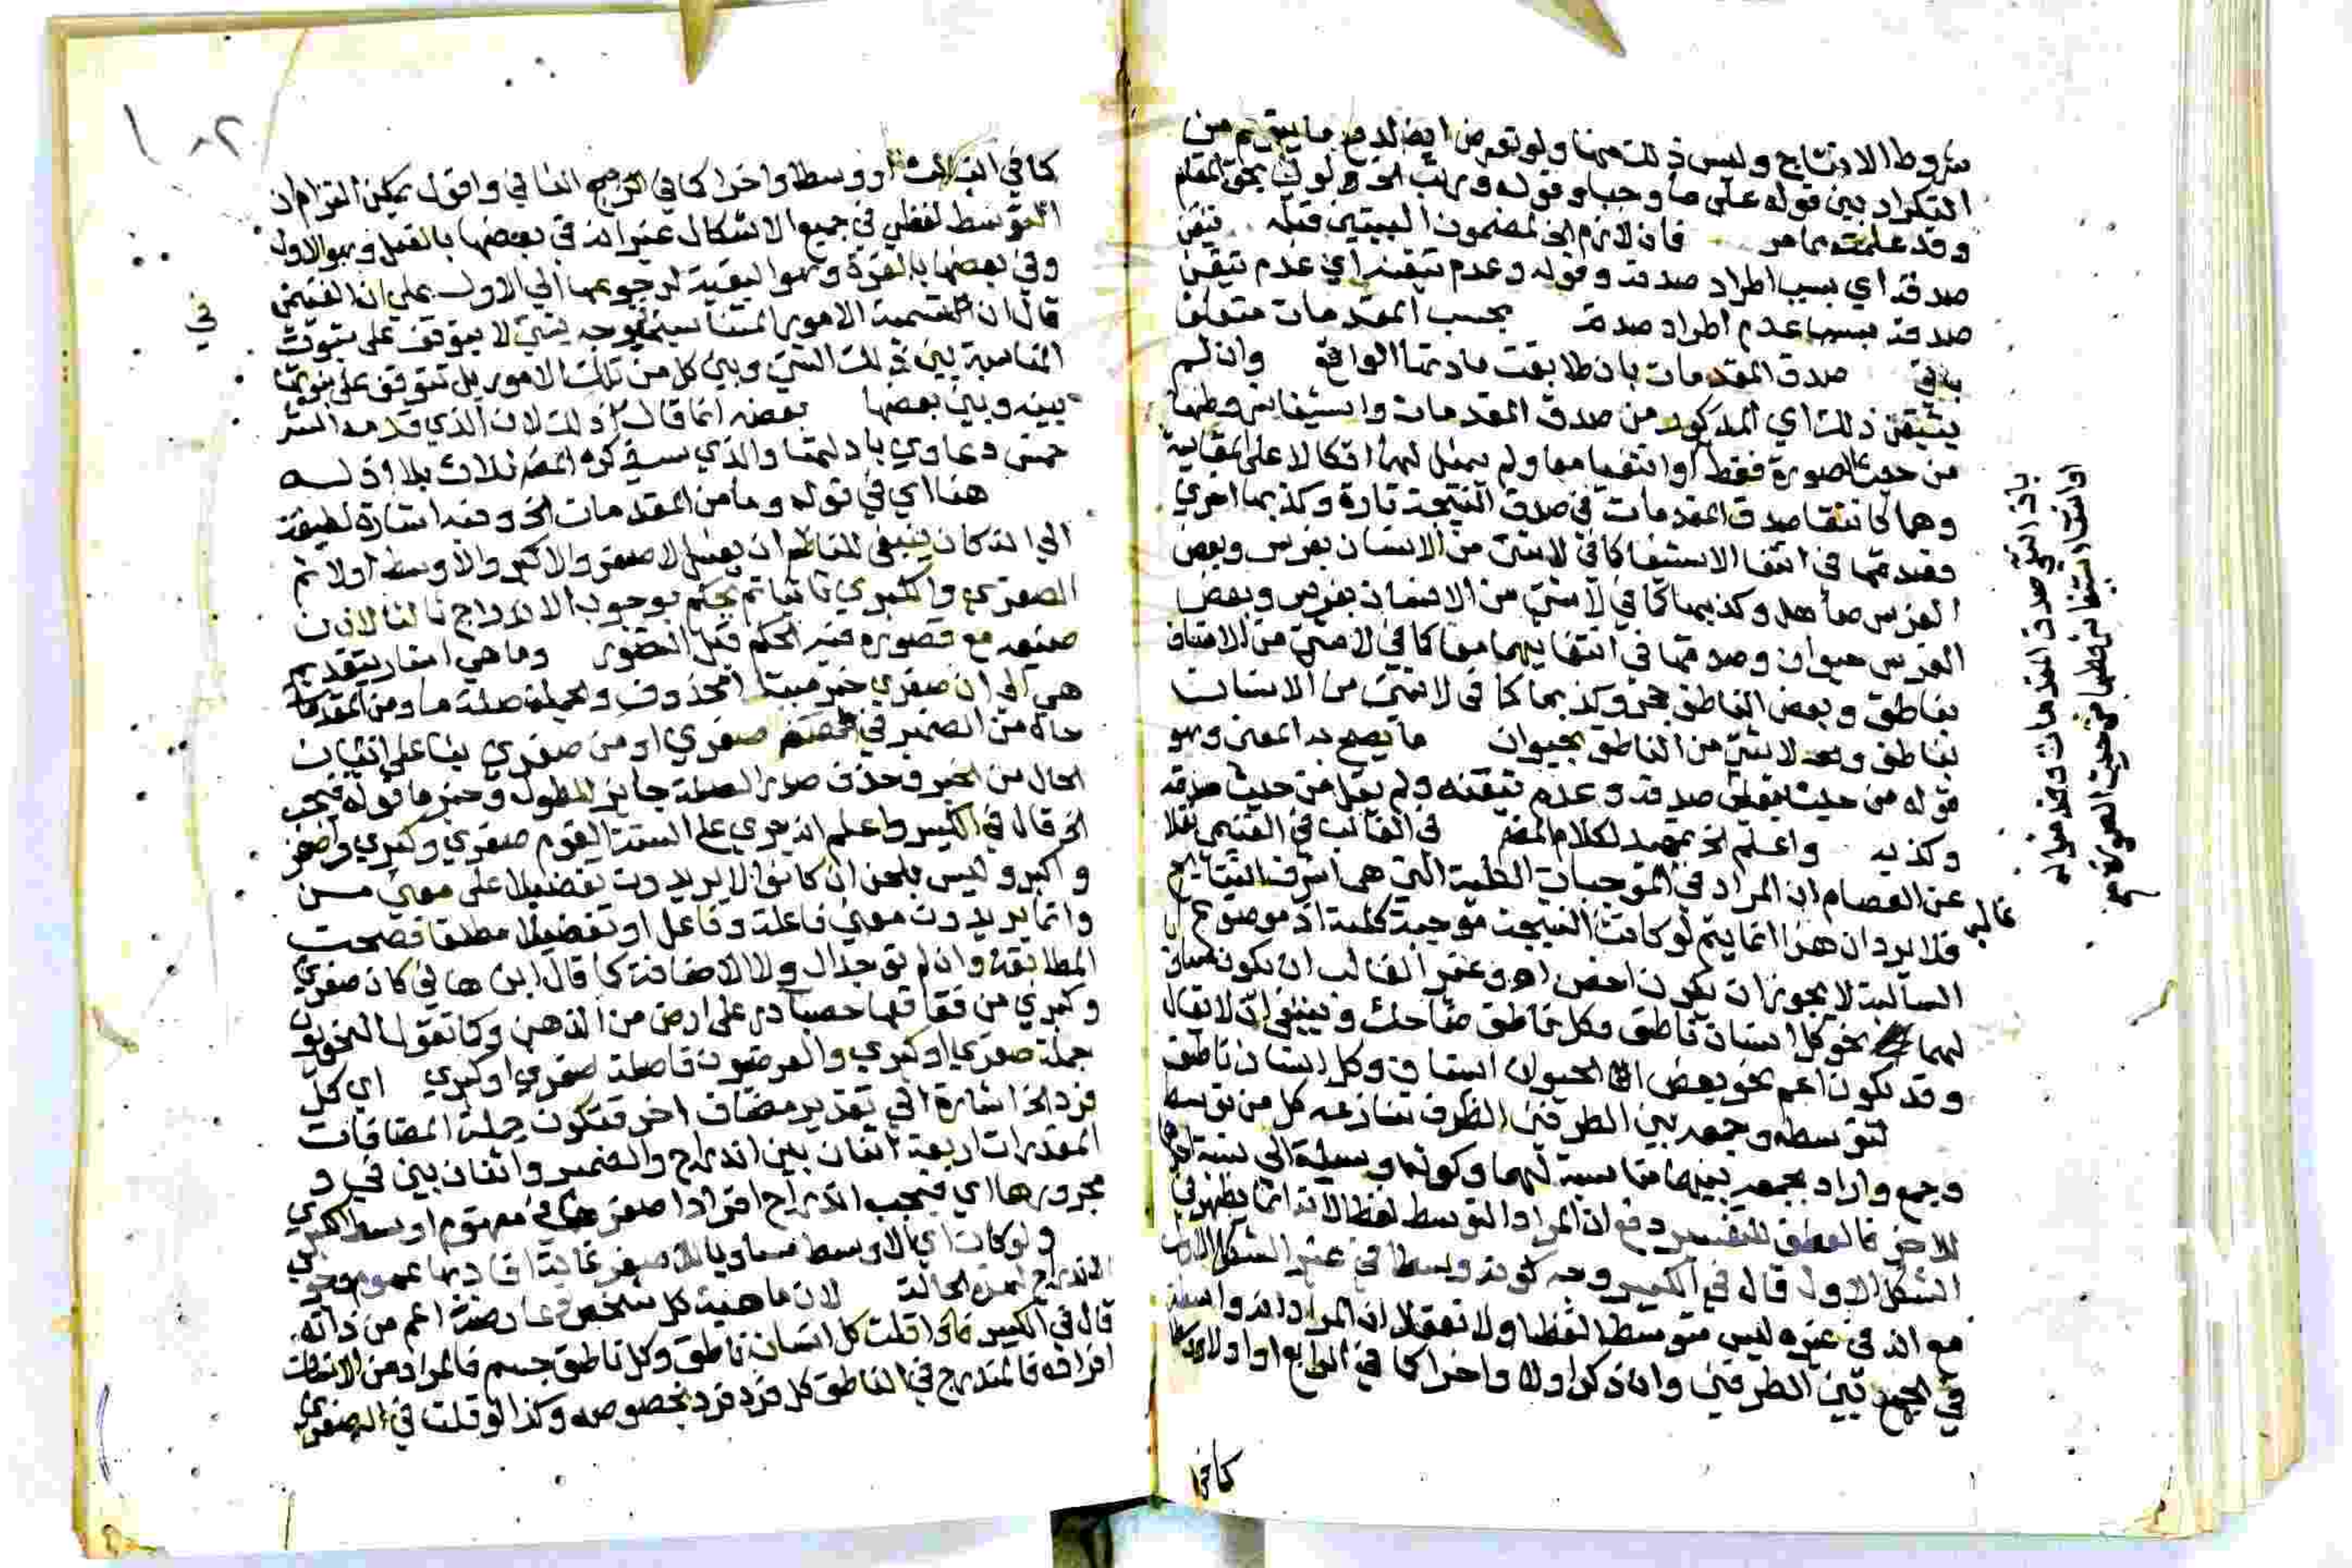 شروط الانتاج وليس ذلك منها ولو تعرض ايضا لدفع ما يتوهم من
التكرار بين قوله على ما وجبا وقوله ورتب الخ ولو لكان بحق المقام
وقد علمته مما مر فان لازم الخ لمضمون البيتين قبله تيقن
صدقه اي بسبب اطراد صدقه وقوله وعدم تيقنه اي عدم تيقن
صدقه بسبب عدم اطراد صدقه بحسب المقدمات متعلق
صدق المقدمات بان طابقت مادتها الواقع وان لم
يتيقن ذلك اي المذكور من صدق المقدمات واستيفا شروطها
من حيث الصورة فقط او انتفيا معا ولم يمثل لهما اتكالا على المقايسة
وهما كانتفا صدق المقدمات في صدق النتيجة تارة وكذبها اخرى
فصدقها في انتفا الاستيفا كما في لا شيء من الانسان بفرس وبعض
الفرس صاهل وكذبها كما في لا شيء من الانسان بفرس وبعض
الفرس حيوان وصدقها في انتفايهما معا كما في لا شيء من الانسان
بناطق وبعض الناطق حجر وكذبها كما في لا شيء من الانسان
بناطق ولا شيء من الناطق بحيوان ما يصح به المعنى وهو
قوله من حيث تيقن صدقه وعدم تيقنه ولم يقل من حيث صدقه
وكذبه واعلم الخ تمهيد لكلام المصنف في الغالب في الغنيمي نقلا
عن العصام ان المراد في الموجبات الكلية التي هي اشرف النتايج
فلا يرد ان هذا انما يتم لو كانت النتيجة موجبة كلية اذ موضوع
السالبة لا يجوز ان يكون اخص اه وغير الغالب ان يكون مساويا
لهما نحو كل انسان ناطق وكل ناطق ضاحك وينبغي ان لا يقال
وقد يكون اعم نحو بعض الحيوان انسان وكل انسان ناطق
لتوسطه وجمعه بين الطرفين الظرف تنازعه كل من توسط
وجمع واراد بجمعه بينهما مناسبة لهما وكونه وسيلة الى نسبة احدهما
للاخر فالعطف للتفسير دفع ان المراد التوسط لفظا لانه انما يظهر في
الشكل الاول قال في الكبير وجه كونه وسطا في غير الشكل الاول
مع انه في غيره ليس متوسطا لفظا ولا تعقلا ان المراد انه واسطة
في الجمع بين الطرفين وان ذكر اولا واخرا كما في الرابع او اولا
كما في
بان انتفى صدق المقدمات وقدم قوله
او انتفا استيفا شروطها من حيث الصورة
غالب
كما في الثالث او وسطا واخرا كما في الثاني واقول يمكن التزام ان
التوسط لفظي في جميع الاشكال غير انه في بعضها بالفعل وهو الاول
وفي بعضها بالقوة وهو البقية لرجوعها الى الاول على ان الغنيمي
قال ان تسمية الامور المتناسبة بوجه بشيء لا يتوقف على ثبوت
المناسبة بين ذلك الشيء وبين كل من تلك الامور بل تتوقف على ثبوتها
بينه وبين بعضها بعضه انما قال ذلك لان الذي قدمه الشر
خمس دعاوي بادلتها والذي سيذكره المصنف ثلاث بلا ادلة
هنا اي في قوله وما من المقدمات الخ وفيه اشارة لطيفة
الى انه كان ينبغي للناظم ان يفسر الاصغر والاكبر والاوسط اولا ثم
الصغرى والكبرى ثانيا ثم يحكم بوجوب الاندراج ثالثا لان
صنيعه مع قصوره فيه الحكم قبل التصور وما هي اشار بتقدير
هي الى ان صغرى خبر مبتدا محذوف والجملة صلة ما ومن المقدمات
حال من الضمير في صغرى او من صغرى بنا على اتيان
الحال من الخبر وحذف صدر الصلة جايز للطول وخبر ما قوله فيجب
الخ قال في الكبير واعلم انه جرى على السنة القوم صغرى وكبرى واصغر
واكبر وليس بلحن ان كانوا لا يريدون تفضيلا على معنى من
وانما يريدون معنى فاعلة وفاعل او تفضيلا مطلقا فصحت
المطابقة وان لم توجد ال ولا الاضافة كما قال ابن هاني كان صغرى
وكبرى من فقاقعها حصباء در على ارض من الذهب وكما تقول النحويون
جملة صغرى او كبرى والعرضيون فاصلة صغرى او كبرى اي كل
فرد الخ اشارة الى تقدير مضاف اخر فتكون جملة المضافات
المقدرات اربعة اثنان بين اندراج والضمير واثنان بين في و
مجرورها اي فيجب اندراج افراد اصغرها في مفهوم اوسط الكبرى
ولو كان اي الاوسط مساويا للاصغر غاية افادتها عموم
الاندراج لهذه الحالة لان ماهية كل شخص عارضة اعم من ذاته
قال في الكبير فاذا قلت كل انسان ناطق وكل ناطق جسم فالمراد من الانسان
افراده فالمندرج في الناطق كل فرد فرد بخصوصه وكذا لو قلت في الصغرى
في